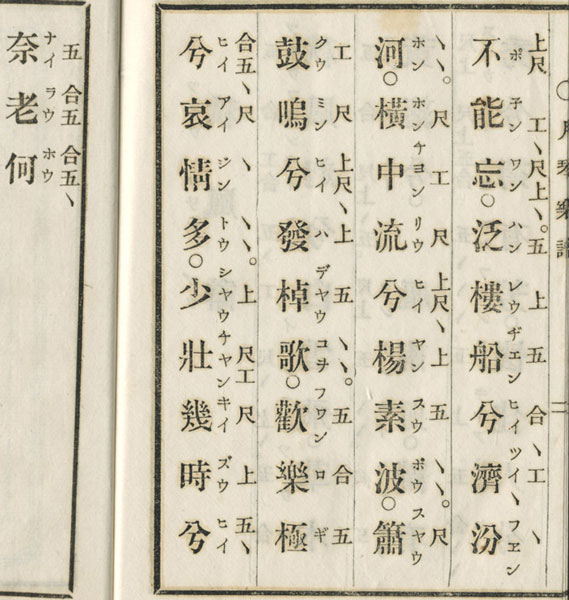 上尺 工丶尺上丶。五 上 五 合丶工 丶
ポ チン ワン ハン レウ ヂエン ヒイ ツイ丶 フエン
不能忘○泛樓船兮濟汾
丶丶。尺 工 尺 上尺丶上 五 丶丶。尺
ホン ホン チヨン リウ ヒイ ヤン スウ ポウ スヤウ
河○橫中流兮楊素波○簫
工 尺 上尺丶丶上 五 丶丶。五 合 五
クウ ミン ヒイ ハ デヤウ コヲ フワン ロ ギ
鼓鳴兮發棹歌○歡樂極
合五丶尺 丶 丶丶。上 尺工 尺 上 五丶
ヒイ アイ ジン トウ シヤウ チヤン キイ ズウ ヒイ
兮哀情多○少壯幾時兮
五 合五 合五丶
ナイ ラウ ホウ
奈老何